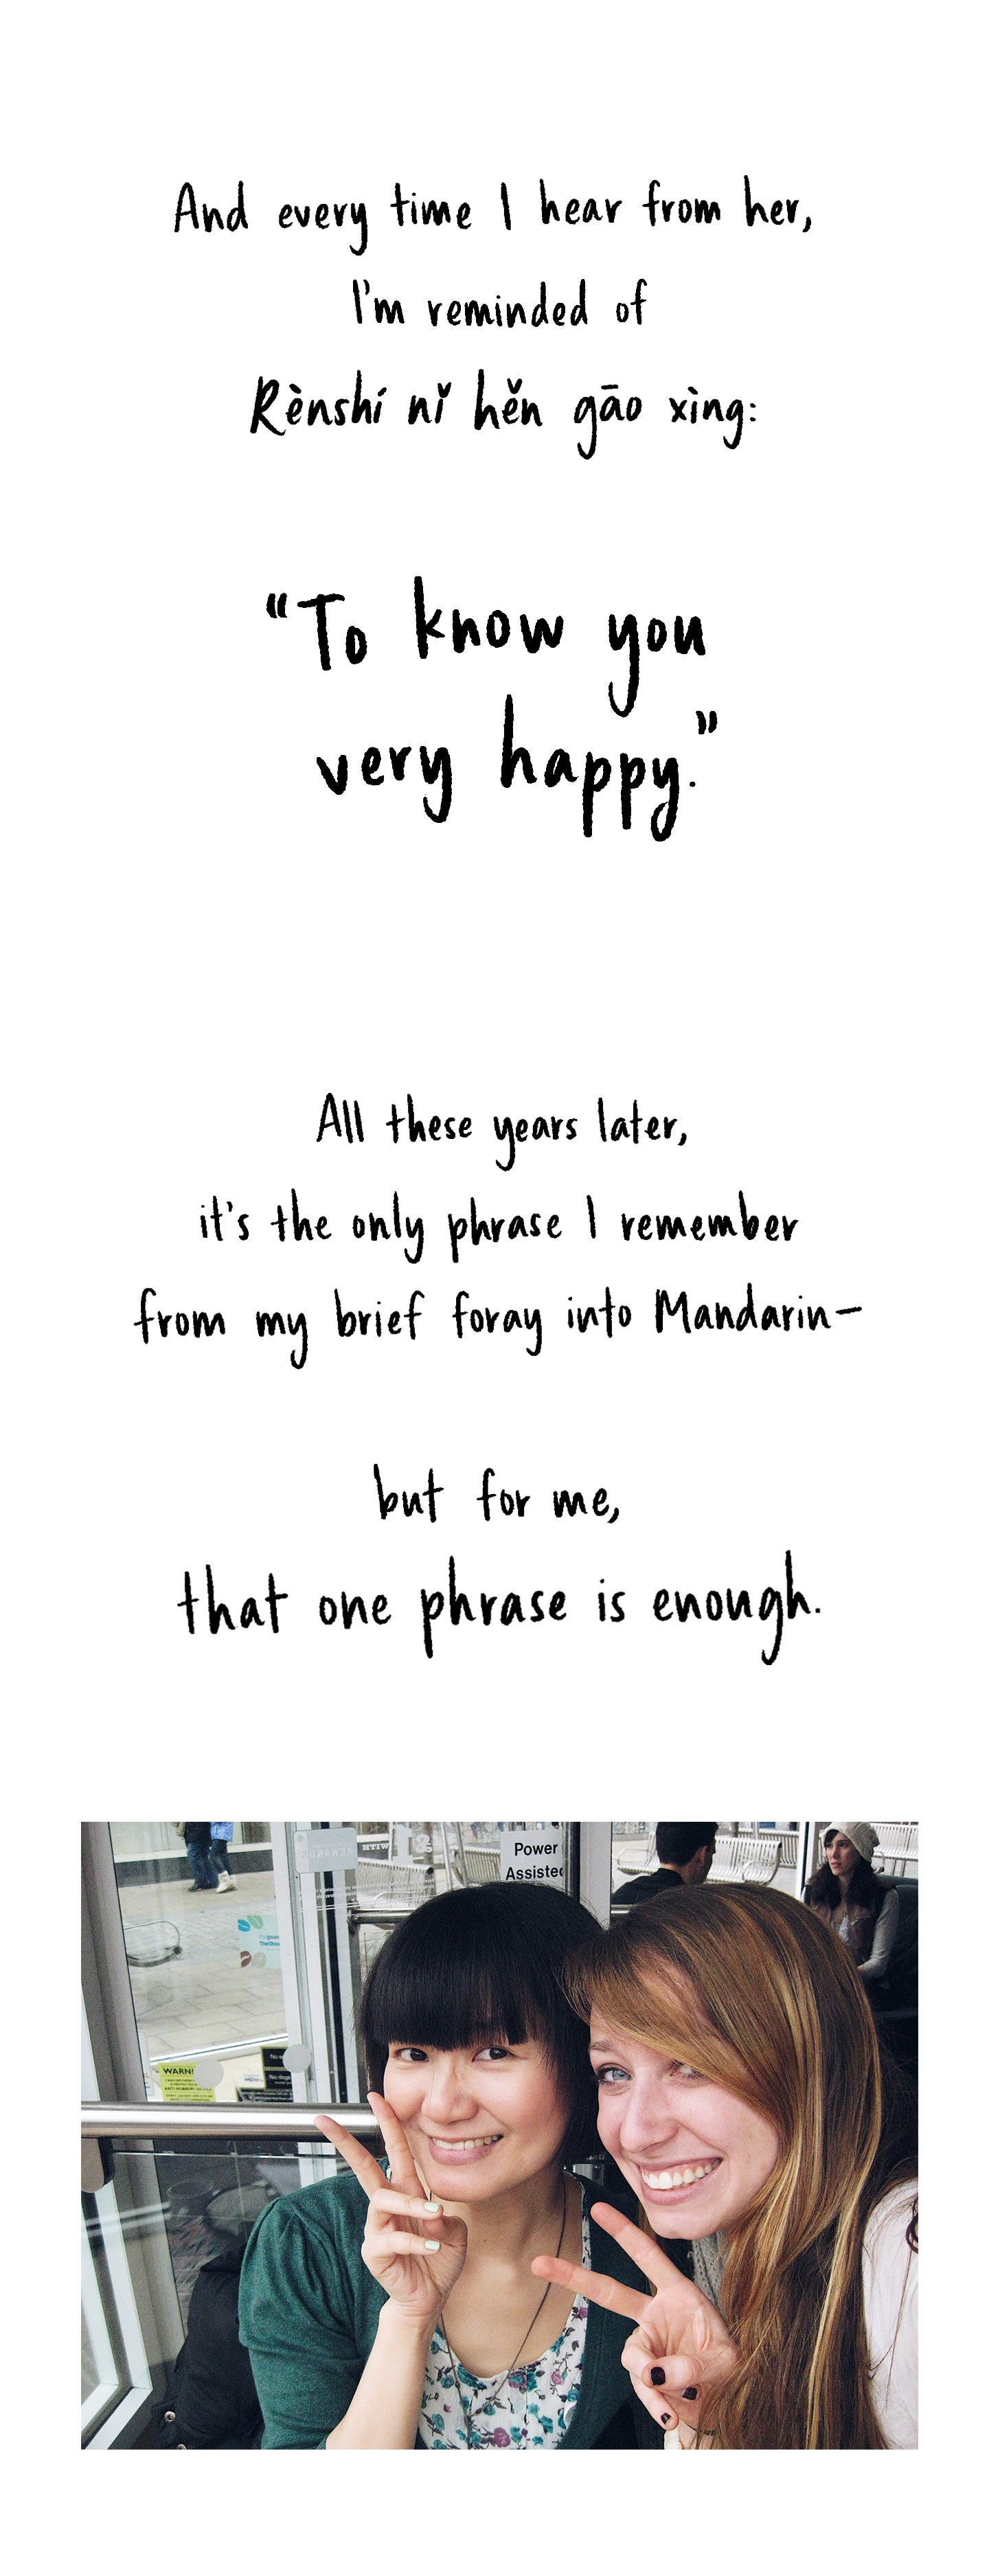 And every time I hear from her,
I'm reminded of
Rènshí nǐ hěn gāo xìng:
“To know you
very happy.”
All these years later,
it's the only phrase I remember
from my brief foray into Mandarin—
but for me,
that one phrase is enough.
Power
Assisted
REWARDS
WARN!
No
No dogs